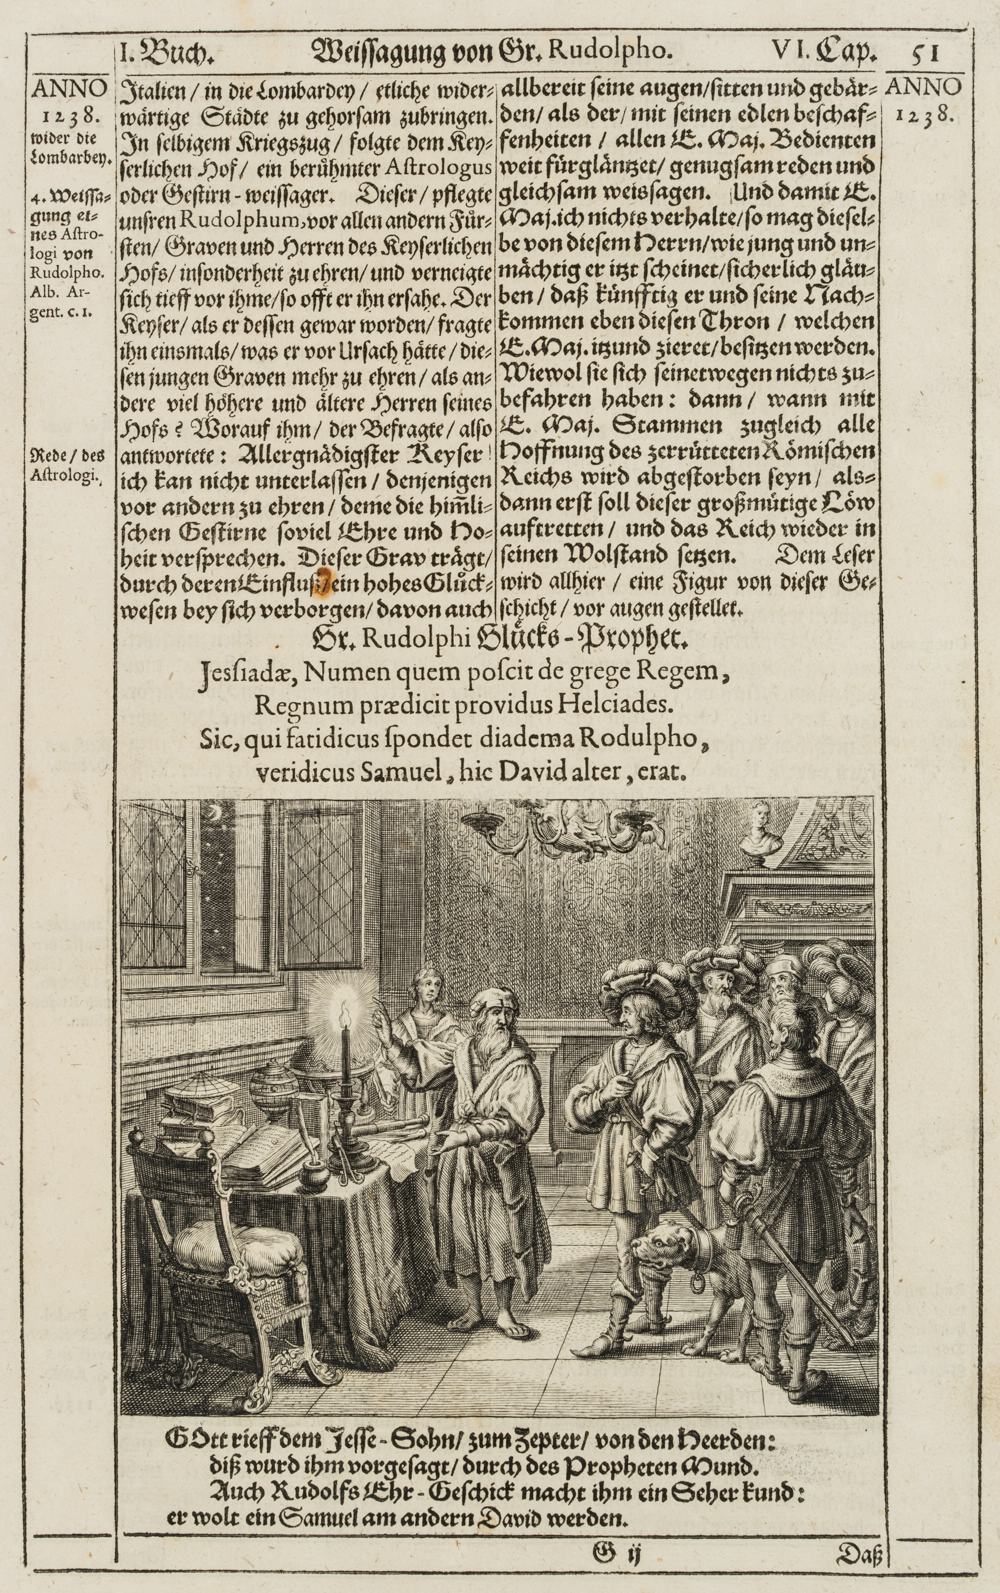 I. Buch. Weissagung von Gr. Rudolpho. VI. Cap. 51
ANNO
1238.
wider die
Lombardey.
4. Weissa-
gung ei-
nes Astro-
logi von
Rudolpho.
Alb. Ar-
gent. c. 1.
Rede / des
Astrologi.
Italien / in die Lombardey / etliche wider-
wärtige Städte zu gehorsam zubringen.
In selbigem Kriegszug / folgte dem Key-
serlichen Hof / ein berühmter Astrologus
oder Gestirn-weissager. Dieser / pflegte
unsren Rudolphum, vor allen andern Für-
sten / Graven und Herren des Keyserlichen
Hofs / insonderheit zu ehren / und verneigte
sich tieff vor ihme / so offt er ihn ersahe. Der
Keyser / als er dessen gewar worden / fragte
ihn einsmals / was er vor Ursach hätte / die-
sen jungen Graven mehr zu ehren / als an-
dere viel höhere und ältere Herren seines
Hofs? Worauf ihm / der Befragte / also
antwortete: Allergnädigster Keyser!
ich kan nicht unterlassen / denjenigen
vor andern zu ehren / deme die him̃li-
schen Gestirne soviel Ehre und Ho-
heit versprechen. Dieser Grav trägt /
durch deren Einfluß / ein hohes Glück-
wesen bey sich verborgen / davon auch
allbereit seine augen / sitten und gebär-
den / als der / mit seinen edlen beschaf-
fenheiten / allen E. Maj. Bedienten
weit fürgläntzet / genugsam reden und
gleichsam weissagen. Und damit E.
Maj. ich nichts verhalte / so mag diesel-
be von diesem Herrn / wie jung und un-
mächtig er itzt scheinet / sicherlich gläu-
ben / daß künfftig er und seine Nach-
kommen eben diesen Thron / welchen
E. Maj. itzund zieret / besitzen werden.
Wiewol sie sich seinetwegen nichts zu-
befahren haben: dann / wann mit
E. Maj. Stammen zugleich alle
Hoffnung des zerrütteten Römischen
Reichs wird abgestorben seyn / als-
dann erst soll dieser großmütige Löw
auftretten / und das Reich wieder in
seinen Wolstand setzen. Dem Leser
wird allhier / eine Figur von dieser Ge-
schicht / vor augen gestellet.
ANNO
1238.
Gr. Rudolphi Glücks-Prophet.
Jessiadæ, Numen quem poscit de grege Regem,
Regnum prædicit providus Helciades.
Sic, qui fatidicus spondet diadema Rodulpho,
veridicus Samuel, hic David alter, erat.
GOtt rieff dem Jesse-Sohn / zum Zepter / von den Heerden:
diß wurd ihm vorgesagt / durch des Propheten Mund.
Auch Rudolfs Ehr-Geschick macht ihm ein Seher kund:
er wolt ein Samuel am andern David werden.
G ij Daß